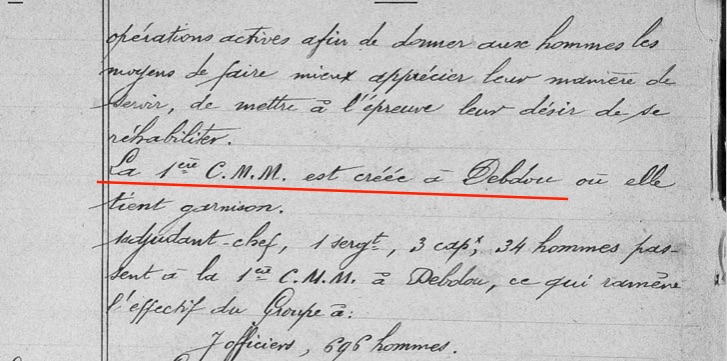 opérations actives afin de donner aux hommes les
moyens de faire mieux apprécier leur manière de
servir, de mettre à l'épreuve leur désir de se
réhabiliter.
La 1ère C.M.M. est créée à Debdou où elle
tient garnison.
1 adjudant-chef, 1 sergt, 3 capx, 34 hommes pas-
sent à la 1ère C.M.M. à Debdou, ce qui ramène
l'effectif du Groupe à:
7 officiers, 696 hommes.